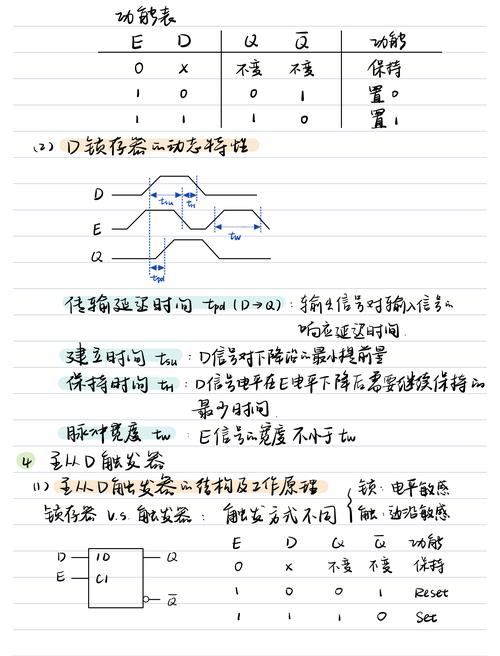 功能表
E D Q Q̅ 功能
0 × 不变 不变 保持
1 0 0 1 置0
1 1 1 0 置1
(2) D锁存器的动态特性
D tsu tH
E tw
Q tpd
传输延迟时间 tpd (D→Q): 输出信号对输入信号的
响应延迟时间.
建立时间 tsu: D信号对下降沿的最小提前量
保持时间 tH: D信号电平在E电平下降后需要继续保持的
最少时间.
脉冲宽度 tw: E信号的宽度不小于tw
4 主从D触发器
(1) 主从D触发器的结构及工作原理
锁: 电平敏感
锁存器 v.s. 触发器: 触发方式不同
触: 边沿敏感
E D Q Q̅ 功能
D 1D Q
0 × 不变 不变 保持
E C1
1 0 0 1 Reset
Q̅
1 1 1 0 Set